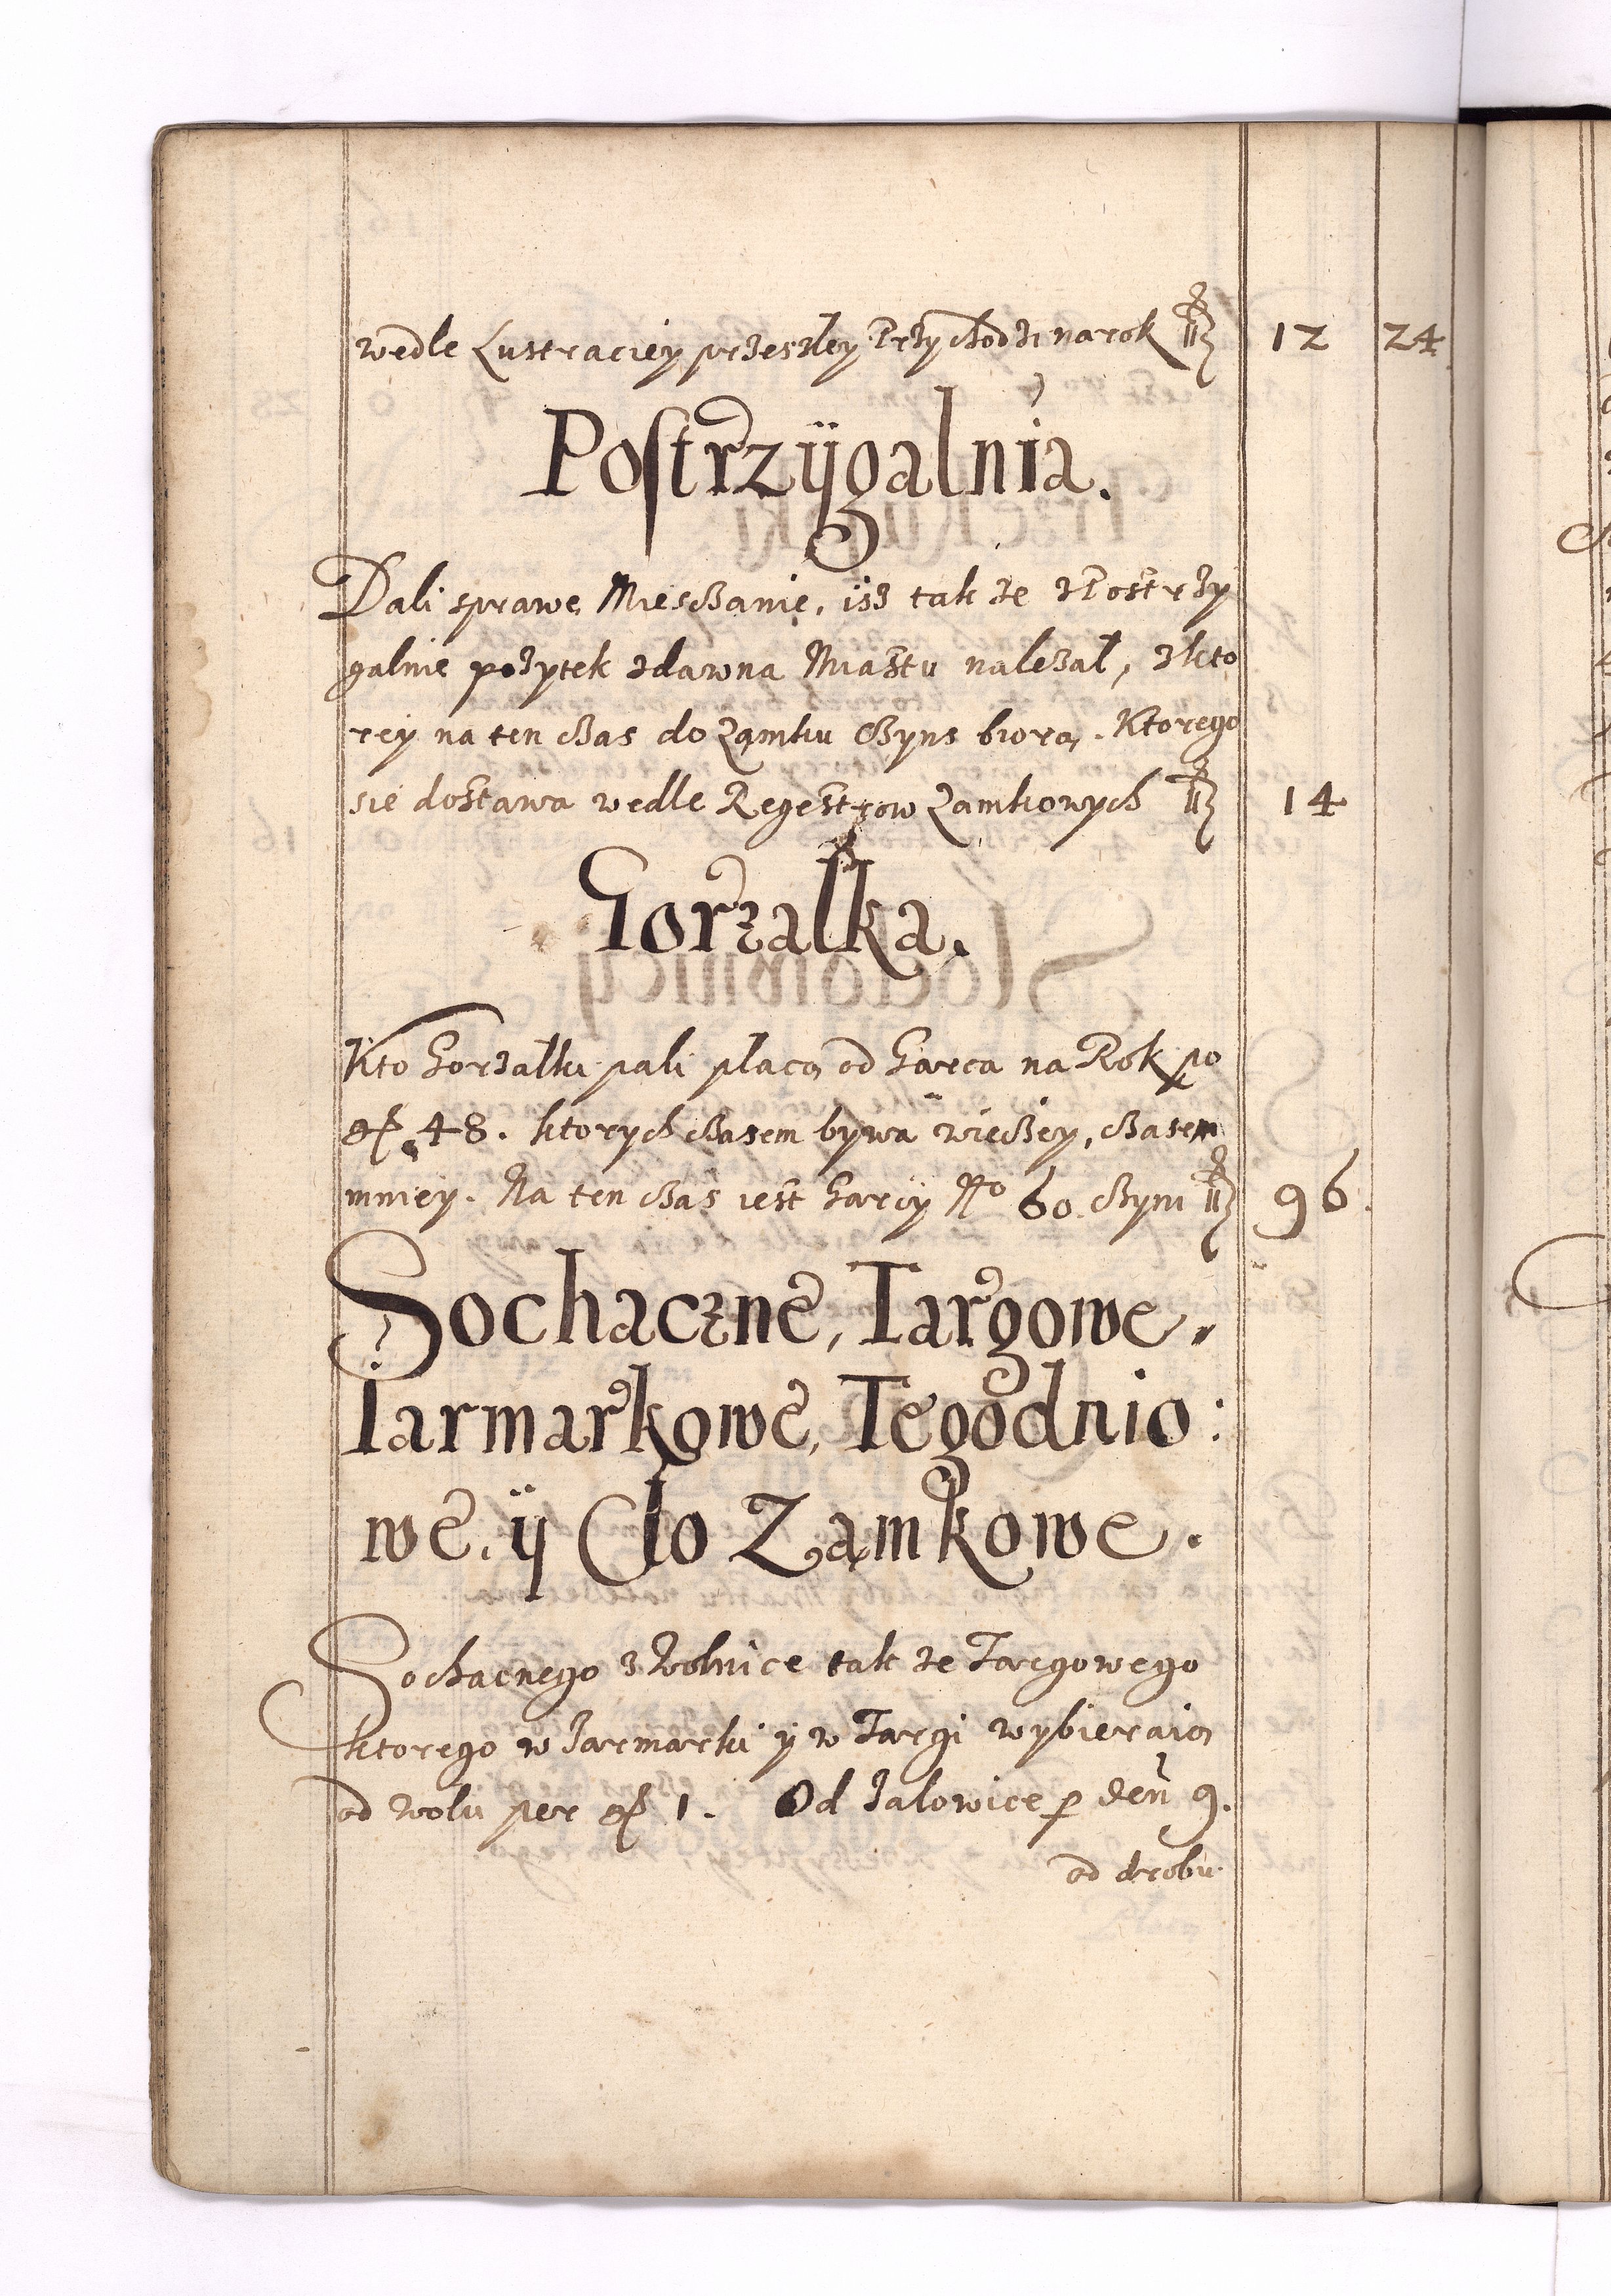 wedle Lustraciey przeszley Przychodzi na rok fl 12 24
Postrzÿgalnia.
Dali sprawę Miesczanie, isz tak ze z Postrzy
galnie pozytek zdawna Miastu nalezał, z kto
rey na ten czas do Zamku Czyns biorą. Ktorego
się dostawa wedle Regestrow Zamkowych fl 14
Gorzałka.
Kto Gorzałkę pali płacą od Garca na Rok po
gr 48. ktorych czasem bywa więczey, czasem
mniey. Na ten czas iest Garcÿ No 60. Czyni fl 96.
Sochaczne, Targowe,
Iarmarkowe, Tegodnio:
we, ÿ Cło Zamkowe.
Sochacznego z Wolnice tak ze Targowego
ktorego w Jarmarki ÿ w Targi wybieraią
od Wołu per gr 1. Od Jałowice per den 9.
od drobu